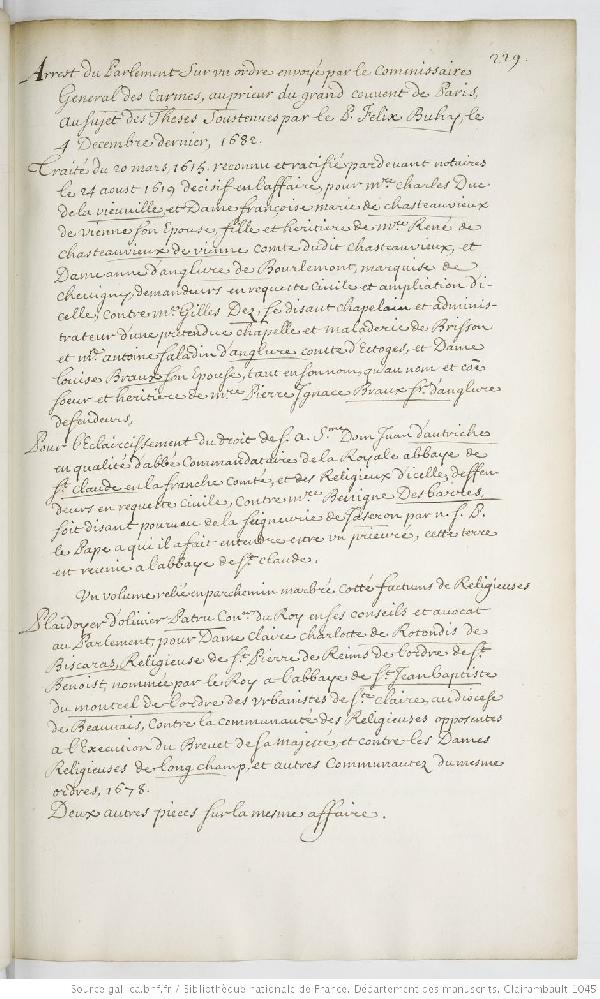 229.
Arrest du Parlement Sur un ordre envoyé par le Commissaire
General des Carmes, au prieur du grand couvent de Paris,
au sujet des Theses Soustenues par le P. Felix Buhy, le
4 Decembre dernier, 1682.
Traité du 20 mars, 1615. reconnu et ratifié pardevant notaires
le 24 aoust 1619 decisif en l'affaire, pour mre Charles Duc
de la vieuuille, et Dame françoise marie de chasteauvieux
de vienne son Epouse, fille et heritiere de mre René de
chasteauvieux de vienne comte dudit chasteauvieux, et
Dame anne d'anglure de Bourlemont, marquise de
cheuigny, demandeurs en requeste Civile et ampliation di-
celle, Contre me Gilles Dez, se disant chapelain et adminis-
trateur d'une pretendue chapelle et maladerie de Brisson
et mre antoine saladin d'anglure comte d'Estoges, et Dame
louise Braux son Epouse, tant en son nom, qu'au nom et coe
soeur et heritiere de mre Pierre Ignace Braux sr. d'anglure
defendeurs,
Pour l'Eclaircissement du droit de s. a. S.me Dom Juan d'autriche
en qualité d'abbé Commandataire de la Royale abbaye de
st. Claude en la franche Comté, et des Religieux d'icelle, deffen-
deurs en requeste Civile, Contre mre Benigne Desbarres,
soit disant pourveu de la seigneurie de par n. s. P.
le Pape a qui il a fait entendre estre un prieuré, cette terre
est reunie a l'abbaye de st. claude.
Un volume relié en parchemin marbré, cotté factums de Religieuses
Plaidoyer d'olivier Patru Conr. du Roy en ses conseils et avocat
au Parlement, pour Dame Claire charlotte de Rotondis de
Biscaras, Religieuse de st. Pierre de Reims de l'ordre de st.
Benoist, nommée par le Roy a l'abbaye de st. Jean baptiste
du moncel de l'ordre des Urbanistes de ste. Claire, au diocese
de Beauvais, Contre la communauté des Religieuses opposentes
a l'Execution du Brevet de sa majesté, et contre les Dames
Religieuses de long champ, et autres Communautez du mesme
ordres, 1678.
Deux autres pieces sur la mesme affaire.
Source gallica.bnf.fr / Bibliothèque nationale de France. Département des manuscrits. Clairambault 1045